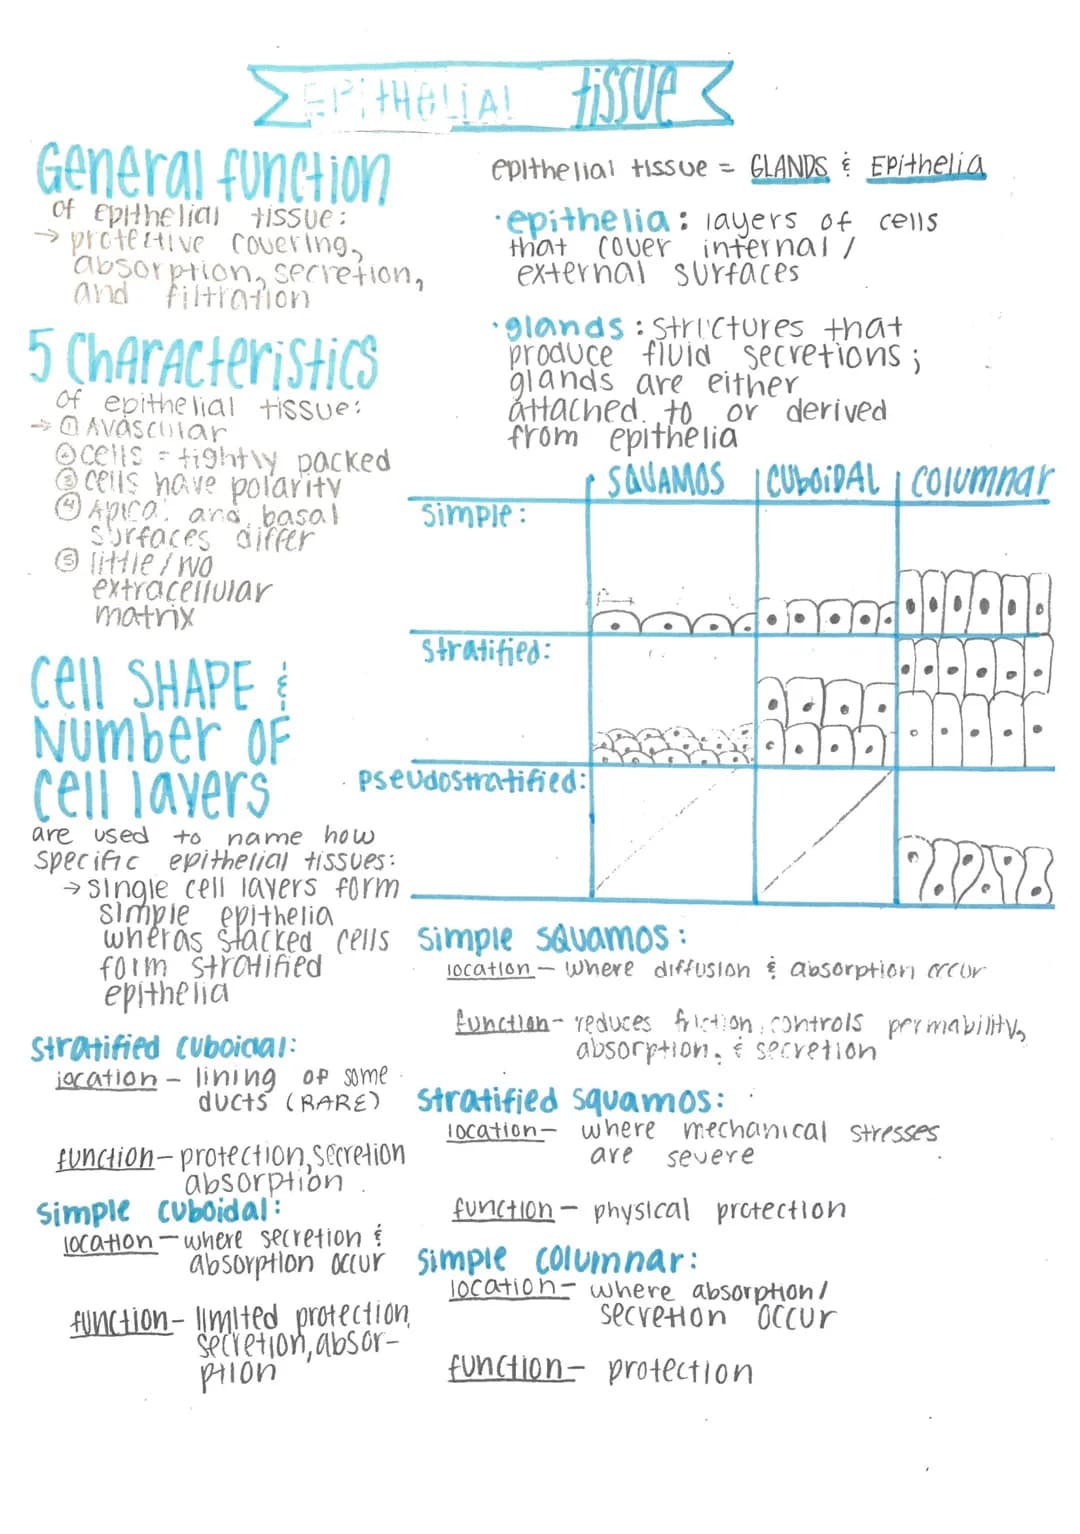 EPiTHElIAl tissue
General function
of epithelial tissue:
→ protective covering,
absorption, secretion,
and filtration
5 Characteristics
of epithelial tissue:
→ ① Avascular
② cells = tightly packed
③ cells have polarity
④ Apical and basal
surfaces differ
⑤ little / no
extracellular
matrix
Cell SHAPE &
Number OF
Cell layers
are used to name how
specific epithelial tissues:
→ single cell layers form
simple epithelia
wheras stacked cells
form stratified
epithelia
stratified cuboidal:
location – lining of some
ducts (RARE)
function – protection, secretion
absorption
simple cuboidal:
location – where secretion &
absorption occur
function – limited protection,
secretion, absor-
ption
epithelial tissue = GLANDS & Epithelia
· epithelia: layers of cells
that cover internal /
external surfaces
· glands: structures that
produce fluid secretions;
glands are either
attached to or derived
from epithelia
SQUAMOS CUBOIDAL Columnar
simple:
stratified:
pseudostratified:
simple squamos:
location – where diffusion & absorption occur
function – reduces friction, controls permability,
absorption, & secretion
stratified squamos:
location – where mechanical stresses
are severe
function – physical protection
simple columnar:
location – where absorption/
secretion occur
function – protection